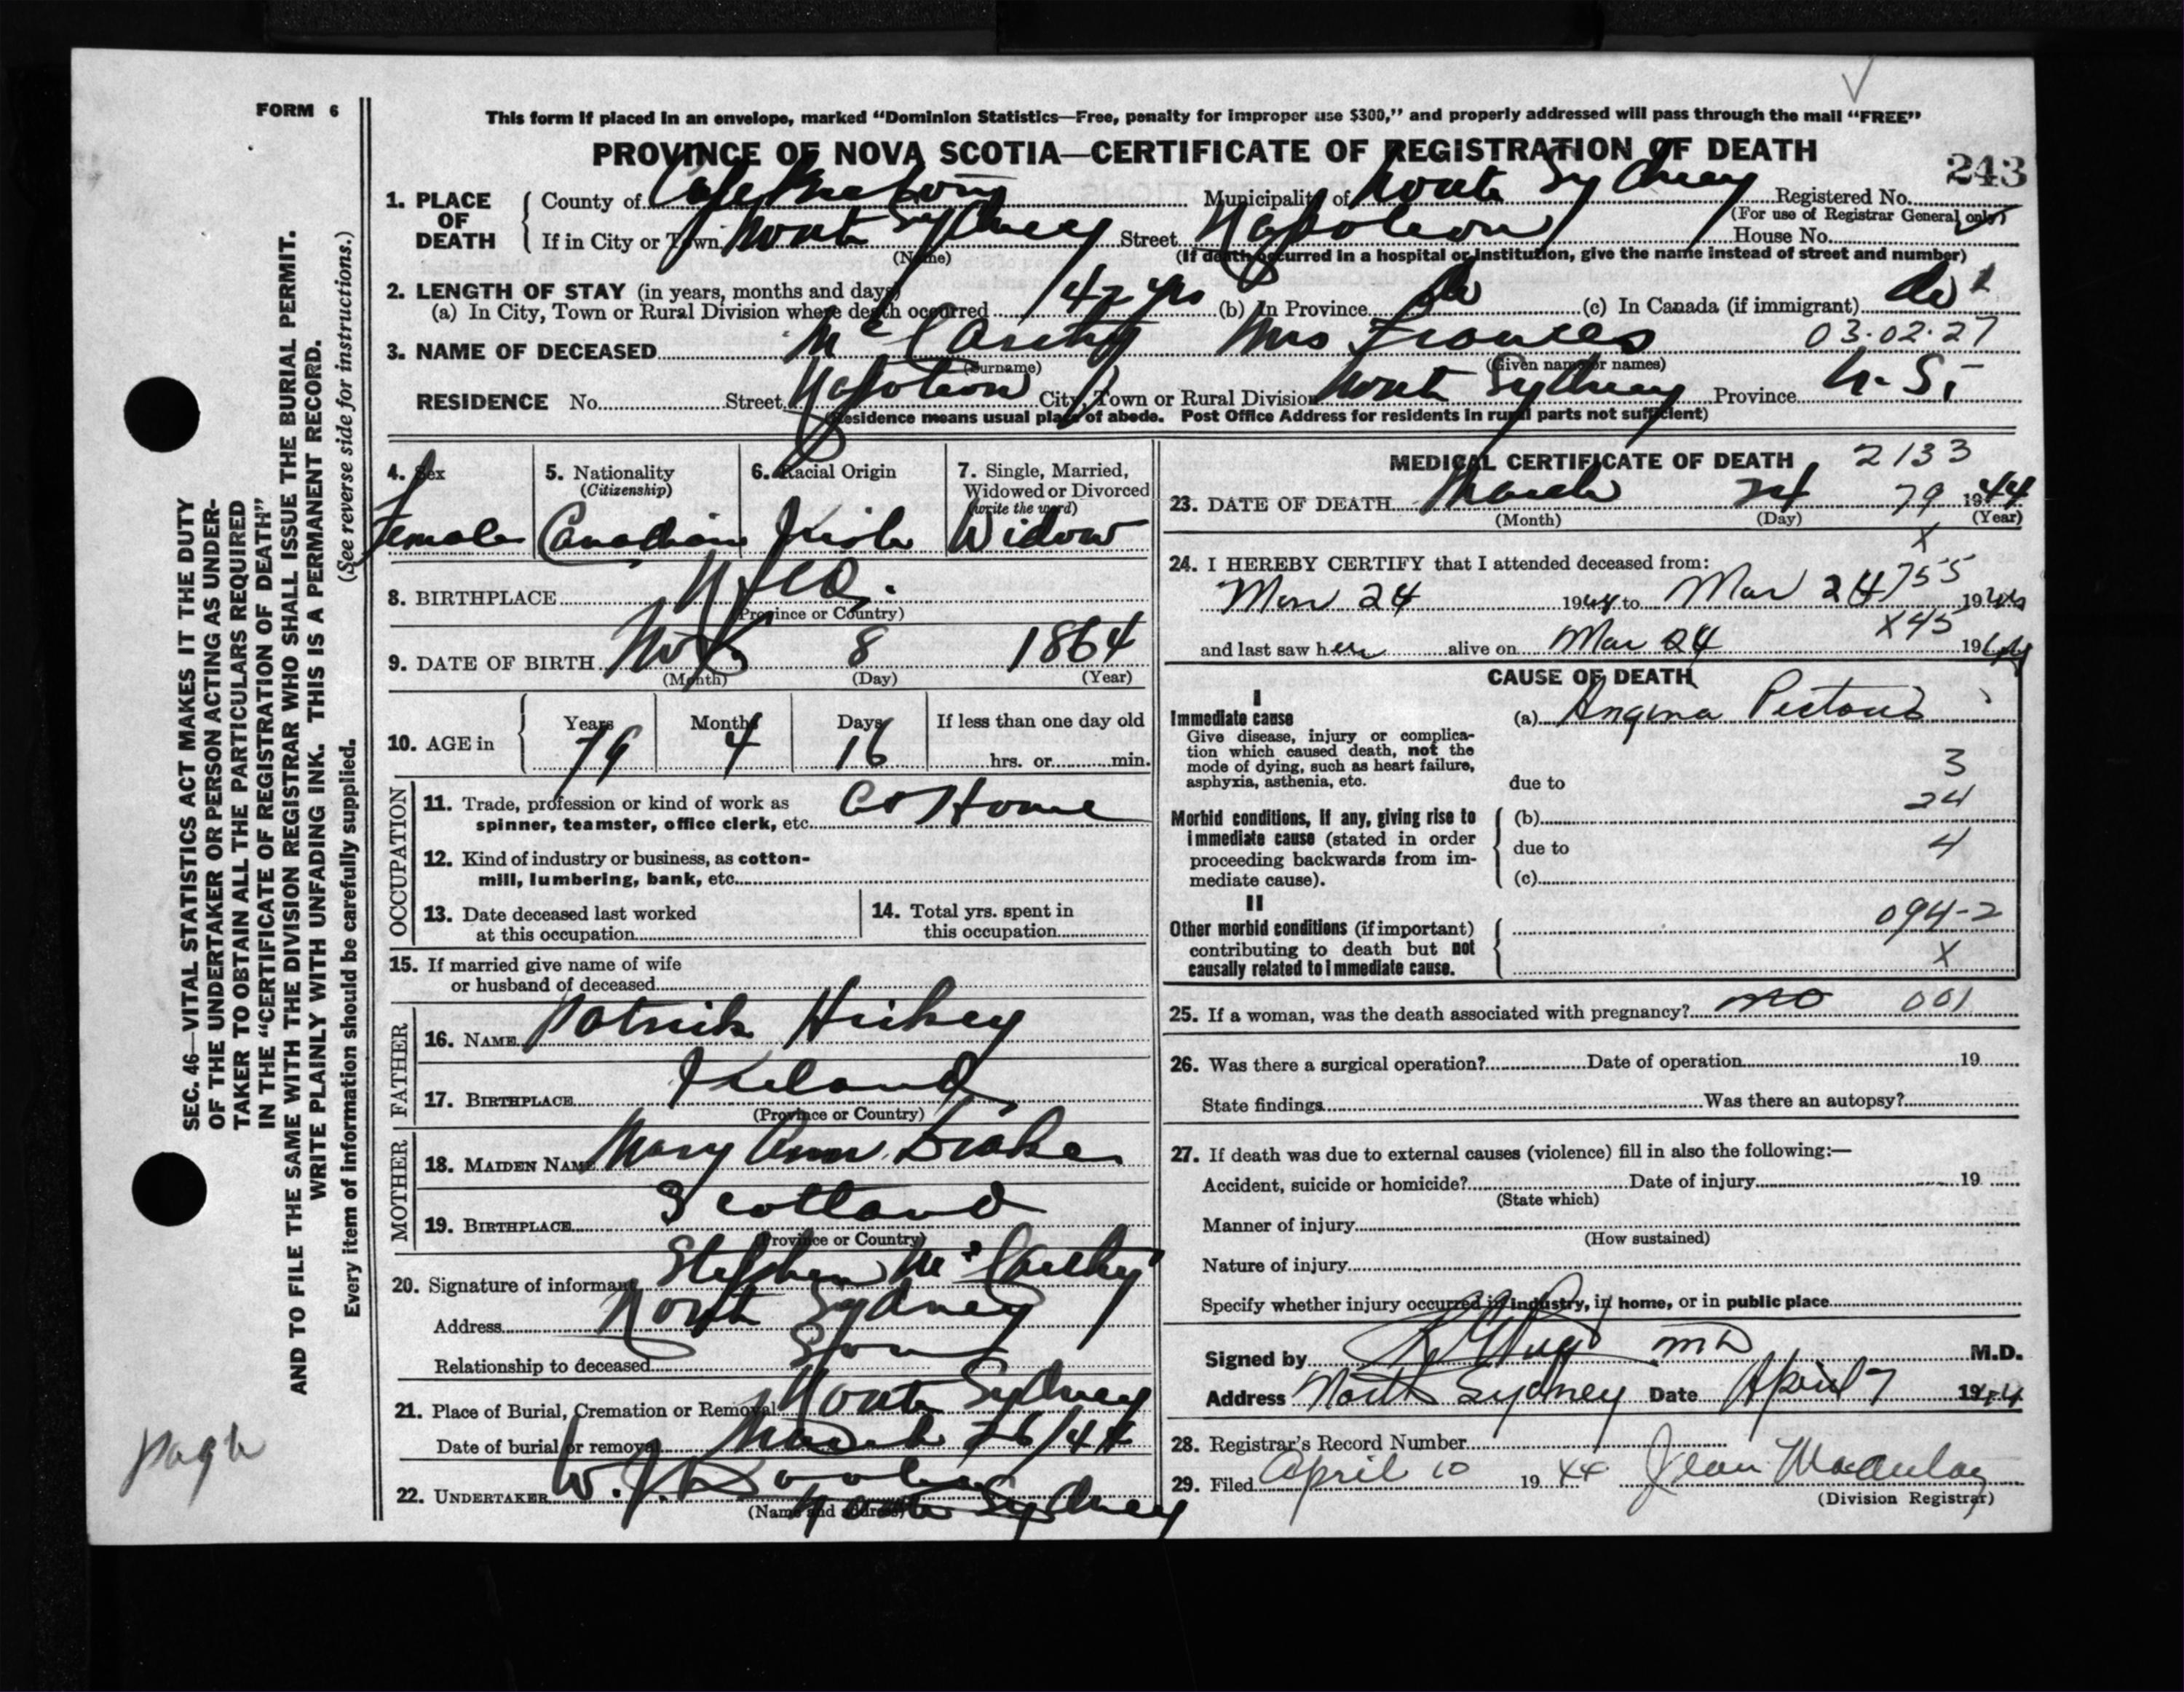 FORM 6
This form if placed in an envelope, marked “Dominion Statistics—Free, penalty for improper use $300,” and properly addressed will pass through the mail “FREE”
PROVINCE OF NOVA SCOTIA—CERTIFICATE OF REGISTRATION OF DEATH
243
1. PLACE OF DEATH
County of Cape Breton Municipality of North Sydney Registered No.
(For use of Registrar General only)
If in City or Town North Sydney Street Napoleon House No.
(Name) (If death occurred in a hospital or institution, give the name instead of street and number)
2. LENGTH OF STAY (in years, months and days)
(a) In City, Town or Rural Division where death occurred 42 yrs (b) In Province do (c) In Canada (if immigrant) do
3. NAME OF DECEASED McCarthy Mrs Frances 03.02.27
(Surname) (Given name or names)
RESIDENCE No. Street Napoleon City, Town or Rural Division North Sydney Province N.S.
(Residence means usual place of abode. Post Office Address for residents in rural parts not sufficient)
4. Sex
Female
5. Nationality
(Citizenship)
Canadian
6. Racial Origin
Irish
7. Single, Married,
Widowed or Divorced
(write the word)
Widow
8. BIRTHPLACE Nfld.
(Province or Country)
9. DATE OF BIRTH Nov 8 1864
(Month) (Day) (Year)
10. AGE in
Years Months Days If less than one day old
79 4 16 hrs. or min.
OCCUPATION
11. Trade, profession or kind of work as
spinner, teamster, office clerk, etc. At Home
12. Kind of industry or business, as cotton-
mill, lumbering, bank, etc.
13. Date deceased last worked
at this occupation
14. Total yrs. spent in
this occupation
15. If married give name of wife
or husband of deceased
FATHER
16. NAME Patrick Hickey
17. BIRTHPLACE Ireland
(Province or Country)
MOTHER
18. MAIDEN NAME Mary Ann Drake
19. BIRTHPLACE Scotland
(Province or Country)
20. Signature of informant Stephen McCarthy
Address North Sydney
Relationship to deceased Son
21. Place of Burial, Cremation or Removal North Sydney
Date of burial or removal March 26/44
22. UNDERTAKER W. J. Dooley
North Sydney
(Name and address)
MEDICAL CERTIFICATE OF DEATH 2133
23. DATE OF DEATH March 24 79 1944
(Month) (Day) (Year)
X
24. I HEREBY CERTIFY that I attended deceased from:
Mar 24 1944 to Mar 24 755 1944
X45
and last saw her alive on Mar 24 1944
CAUSE OF DEATH
I
Immediate cause
Give disease, injury or complica-
tion which caused death, not the
mode of dying, such as heart failure,
asphyxia, asthenia, etc.
(a) Angina Pectoris
3
due to
24
Morbid conditions, if any, giving rise to
immediate cause (stated in order
proceeding backwards from im-
mediate cause).
(b)
due to
4
(c)
II
Other morbid conditions (if important)
contributing to death but not
causally related to immediate cause.
094-2
X
25. If a woman, was the death associated with pregnancy? no 001
26. Was there a surgical operation? Date of operation 19
State findings Was there an autopsy?
27. If death was due to external causes (violence) fill in also the following:—
Accident, suicide or homicide? Date of injury 19
(State which)
Manner of injury
(How sustained)
Nature of injury
Specify whether injury occurred in industry, in home, or in public place
Signed by MD M.D.
Address North Sydney Date April 7 1944
28. Registrar's Record Number
29. Filed April 10 1944 Jean Macaulay
(Division Registrar)
SEC. 46—VITAL STATISTICS ACT MAKES IT THE DUTY
OF THE UNDERTAKER OR PERSON ACTING AS UNDER-
TAKER TO OBTAIN ALL THE PARTICULARS REQUIRED
IN THE “CERTIFICATE OF REGISTRATION OF DEATH”
AND TO FILE THE SAME WITH THE DIVISION REGISTRAR WHO SHALL ISSUE THE BURIAL PERMIT.
WRITE PLAINLY WITH UNFADING INK. THIS IS A PERMANENT RECORD.
Every item of information should be carefully supplied. (See reverse side for instructions.)